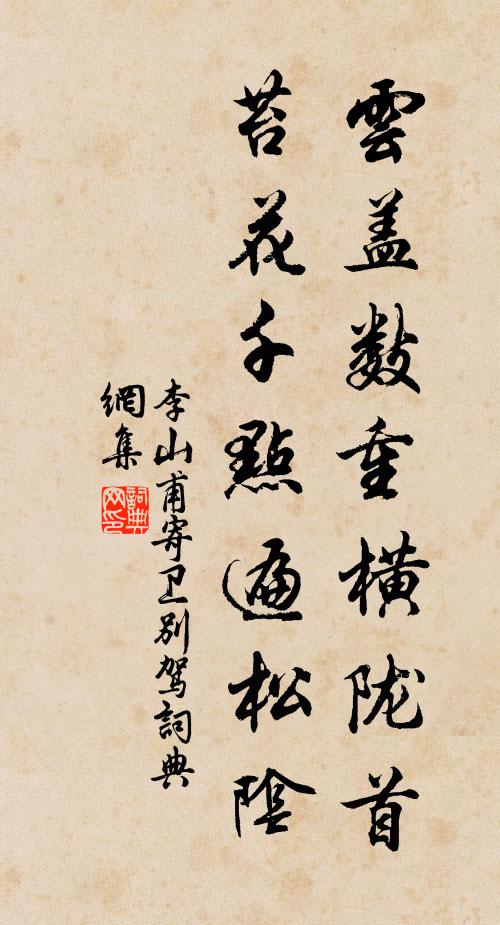 雲盖数重横陇首
苔花千點遍松陰
李山甫寄卫别駕詞典
網集
詞典网印